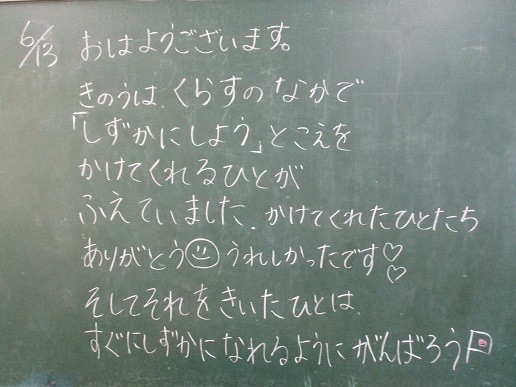 6/13 おはようございます。
きのうは、くらすのなかで
「しずかにしよう」とこえを
かけてくれるひとが
ふえていました。かけてくれたひとたち
ありがとう☺うれしかったです♡♡
そしてそれをきいたひとは、
すぐにしずかになれるようにがんばろう